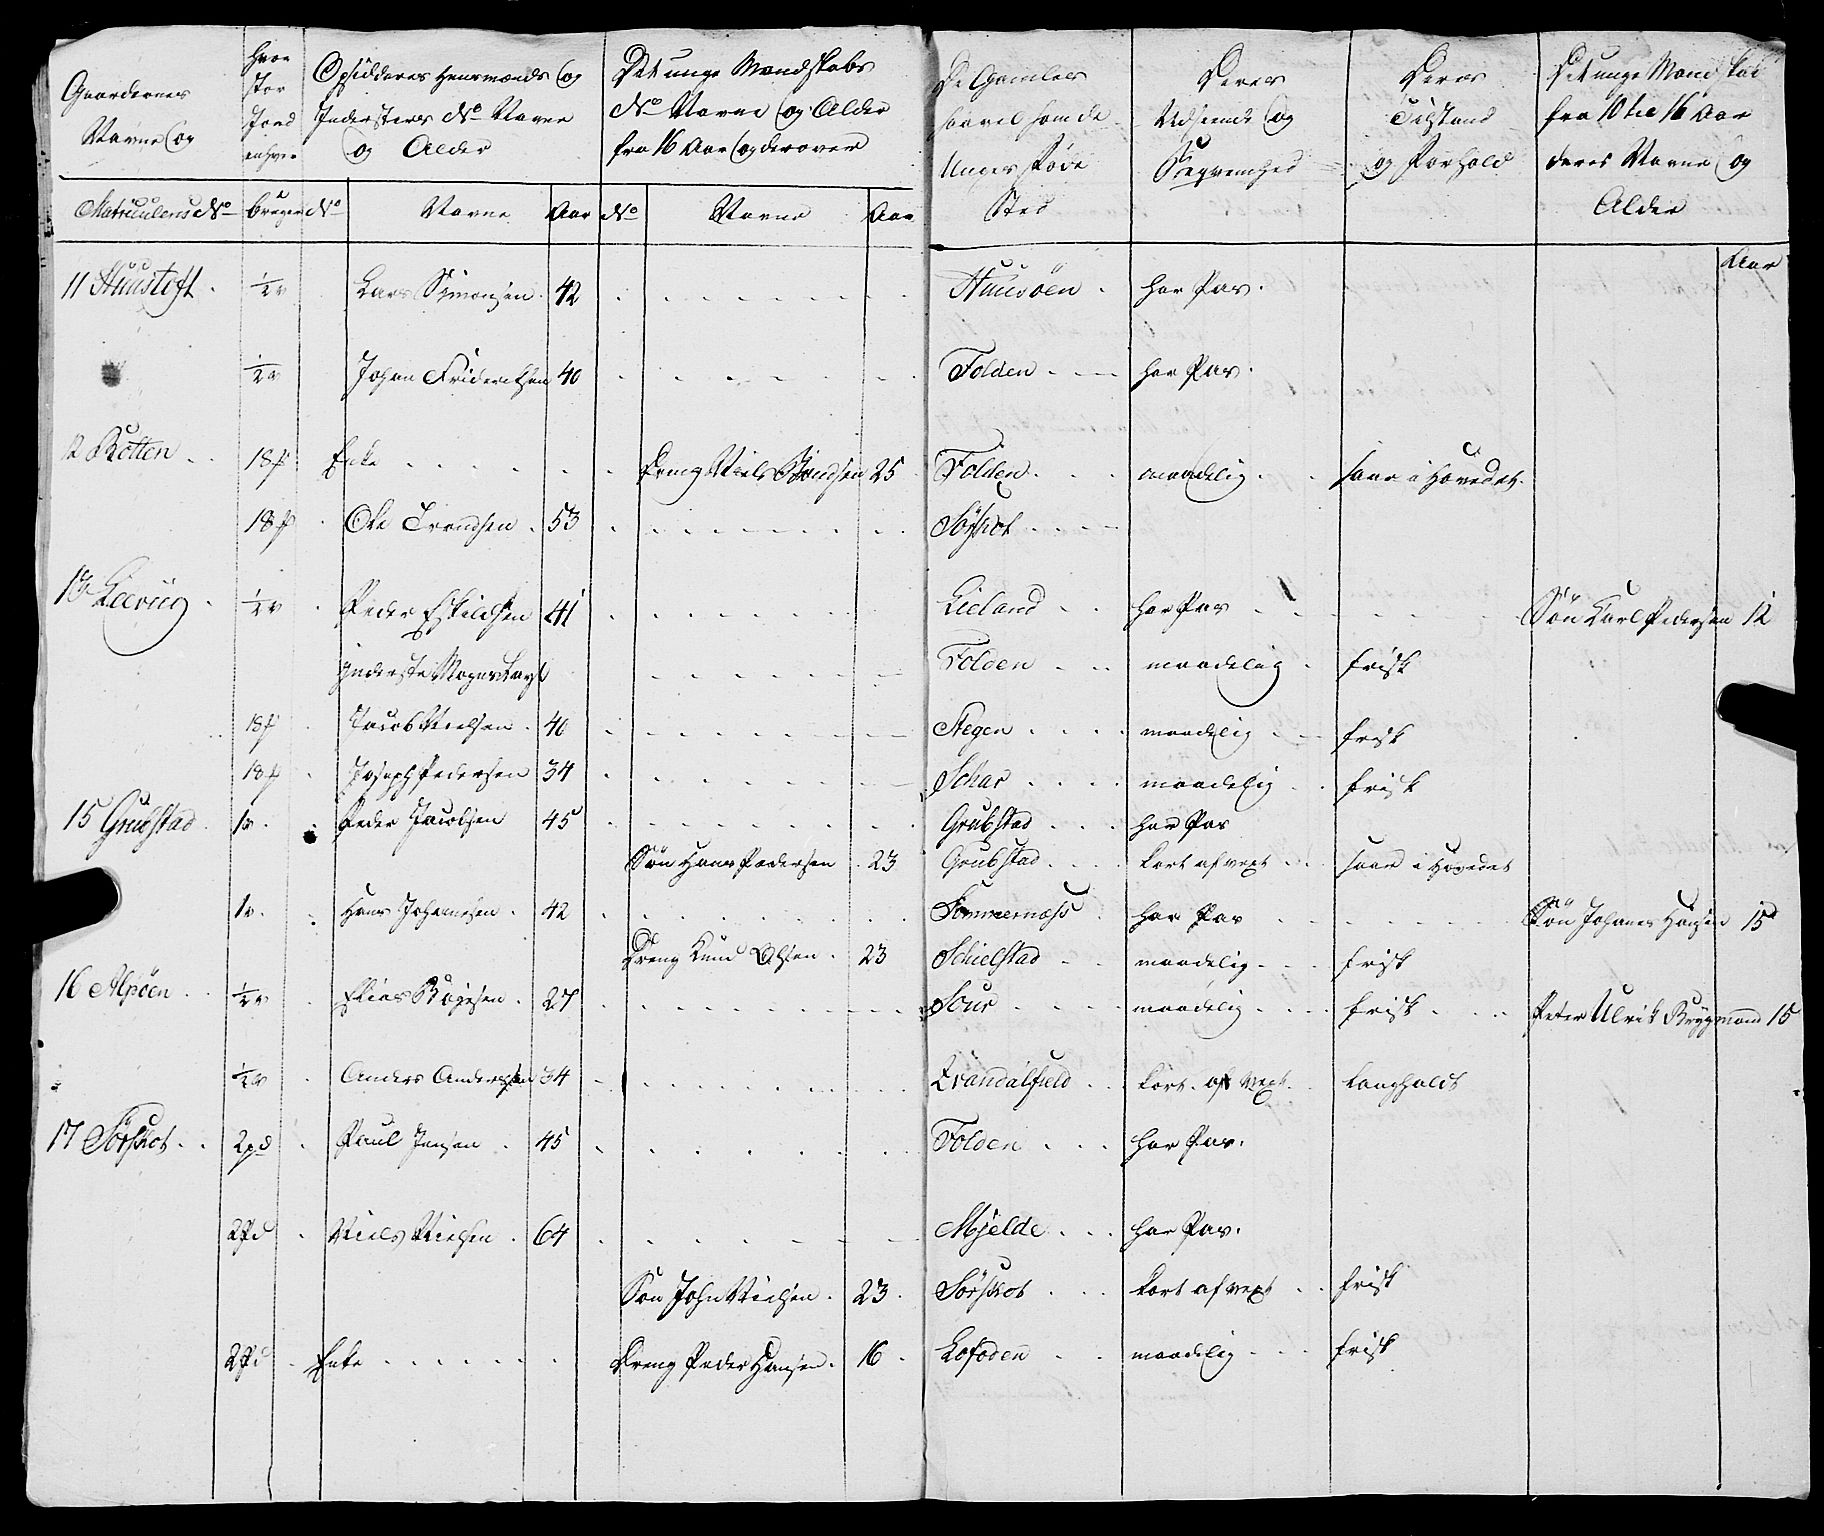 Gaardernes Navne og
hvor stor Jord enhver
Opsidderes Huusmænds og Indersters No Navne og Alder
Det unge Mandskabs No Navne og Alder fra 16 Aar og derover
De Gamles saavel som de Unges føde Sted
Deres Udseende og
Deres Tilstand og Forhold
Det unge Mandskab fra 10 til 16 Aar deres Navne og Alder
Matriculens No bruger No Navne Aar No Navne Aar
Aar
11 Huustoft 1/2 v Lars Simonsen 42 Huusøen har Pas.
1/2 v Johan Friderichsen 40 Folden har Pas.
12 Botten 18 f Enke Dreng Niels 25 Folden maadelig saar i Hovedet.
18 f Ole Trondsen 53 Sørskot
13 Leevüg 1/2 v Peder Eskildsen 41 Lieland har Pas Søn Karl Pedersen 12
Inderste Mogens Folden maadelig frisk
18 f Jacob Nielsen 40 Stegen maadelig frisk
18 f Joseph Pedersen 34 maadelig frisk
15 Grubstad 1 v Peder Jacobsen 45 Grubstad har Pas
Søn Hans Pedersen 23 Grubstad kort af vext saar i Hovedet
1 v Hans Johansen 42 Sommernæss har Pas Søn Johanes Hansen 15
Dreng Knud Olsen 23 Schielstad maadelig frisk
16 Alpøen 1/2 v Elias Bøjesen 27 Sour maadelig frisk Peter Ulrik Brygmand 15
1/2 v Anders Andersen 34 kort af vext
17 Sørskot 2 pd Paul Jensen 45 Folden har Pas.
2 Pd Niels Nielsen 64 Mjelde har Pas.
Søn John Nielsen 23 Sørskot kort af vext frisk
2 Pd Enke Dreng Peder Hansen 16 Lofoden maadelig frisk